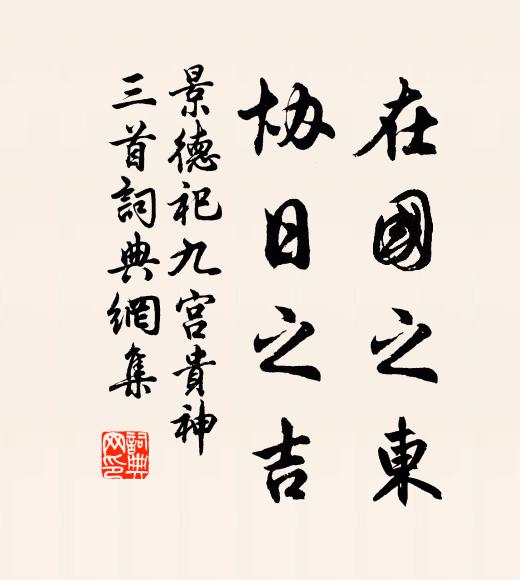 在國之東
协日之吉
景德祀九宫貴神
三首詞典網集
詞典
网印